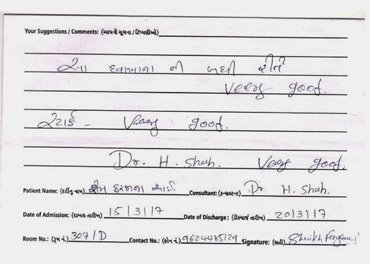 Your Suggestions / Comments: (આપની સૂચના / ટિપ્પણીઓ)
આ દવાખાના ની બધી રીતે
Veery good.
સ્ટાફ - Veery good.
Dr. H. Shah. Veery good.
Patient Name: (દર્દીનું નામ) Consultant: (કન્સલ્ટન્ટ) Dr. H. Shah.
Date of Admission: (દાખલ તારીખ) 15/3/17 Date of Discharge: (ડિસ્ચાર્જ તારીખ) 20/3/17
Room No.: (રૂમ નં.) 307/D Contact No.: (ફોન નં.) Signature: (સહી) Sheikh